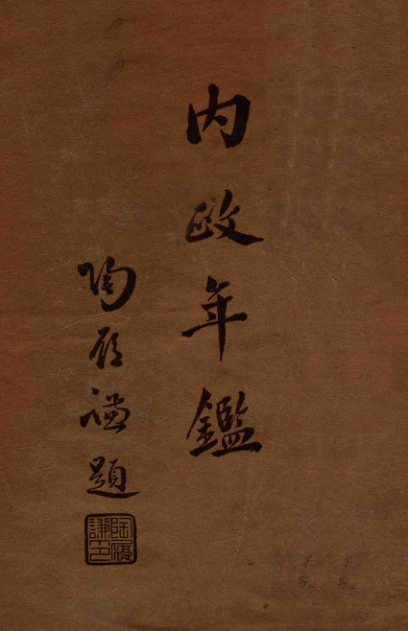 内政年鑑
陶履謙題
陶履謙印